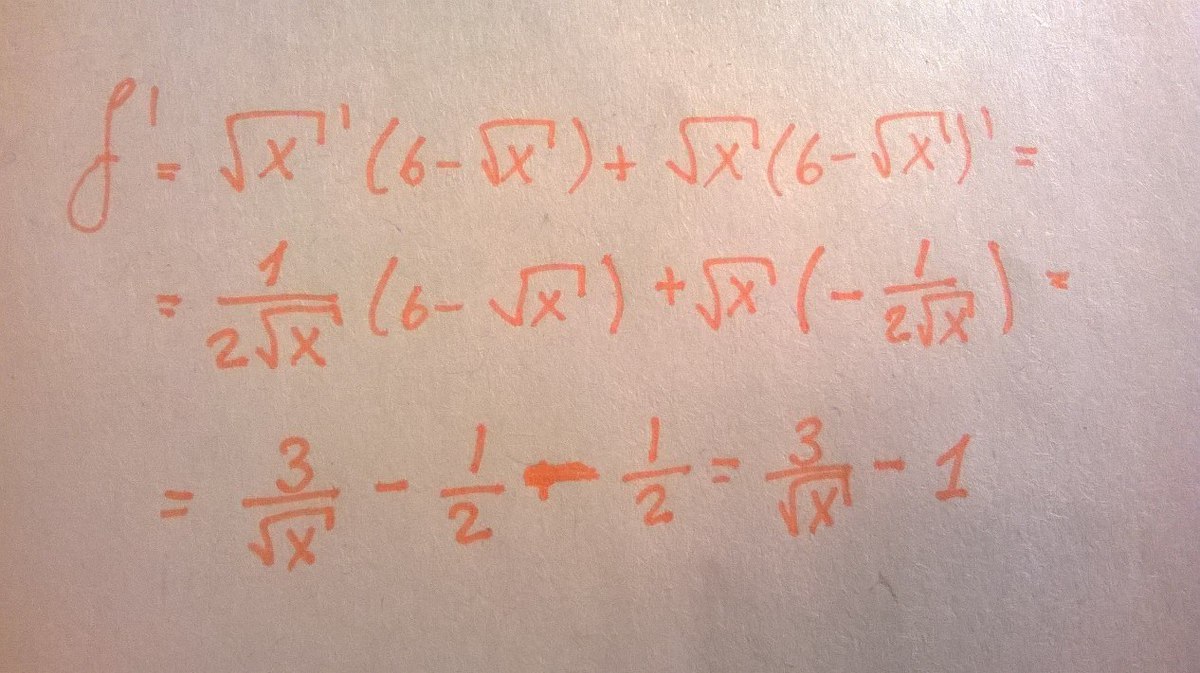 f' = √x' (6 - √x) + √x (6 - √x)' =
= 1/(2√x) (6 - √x) + √x (- 1/(2√x)) =
= 3/√x - 1/2 - 1/2 = 3/√x - 1